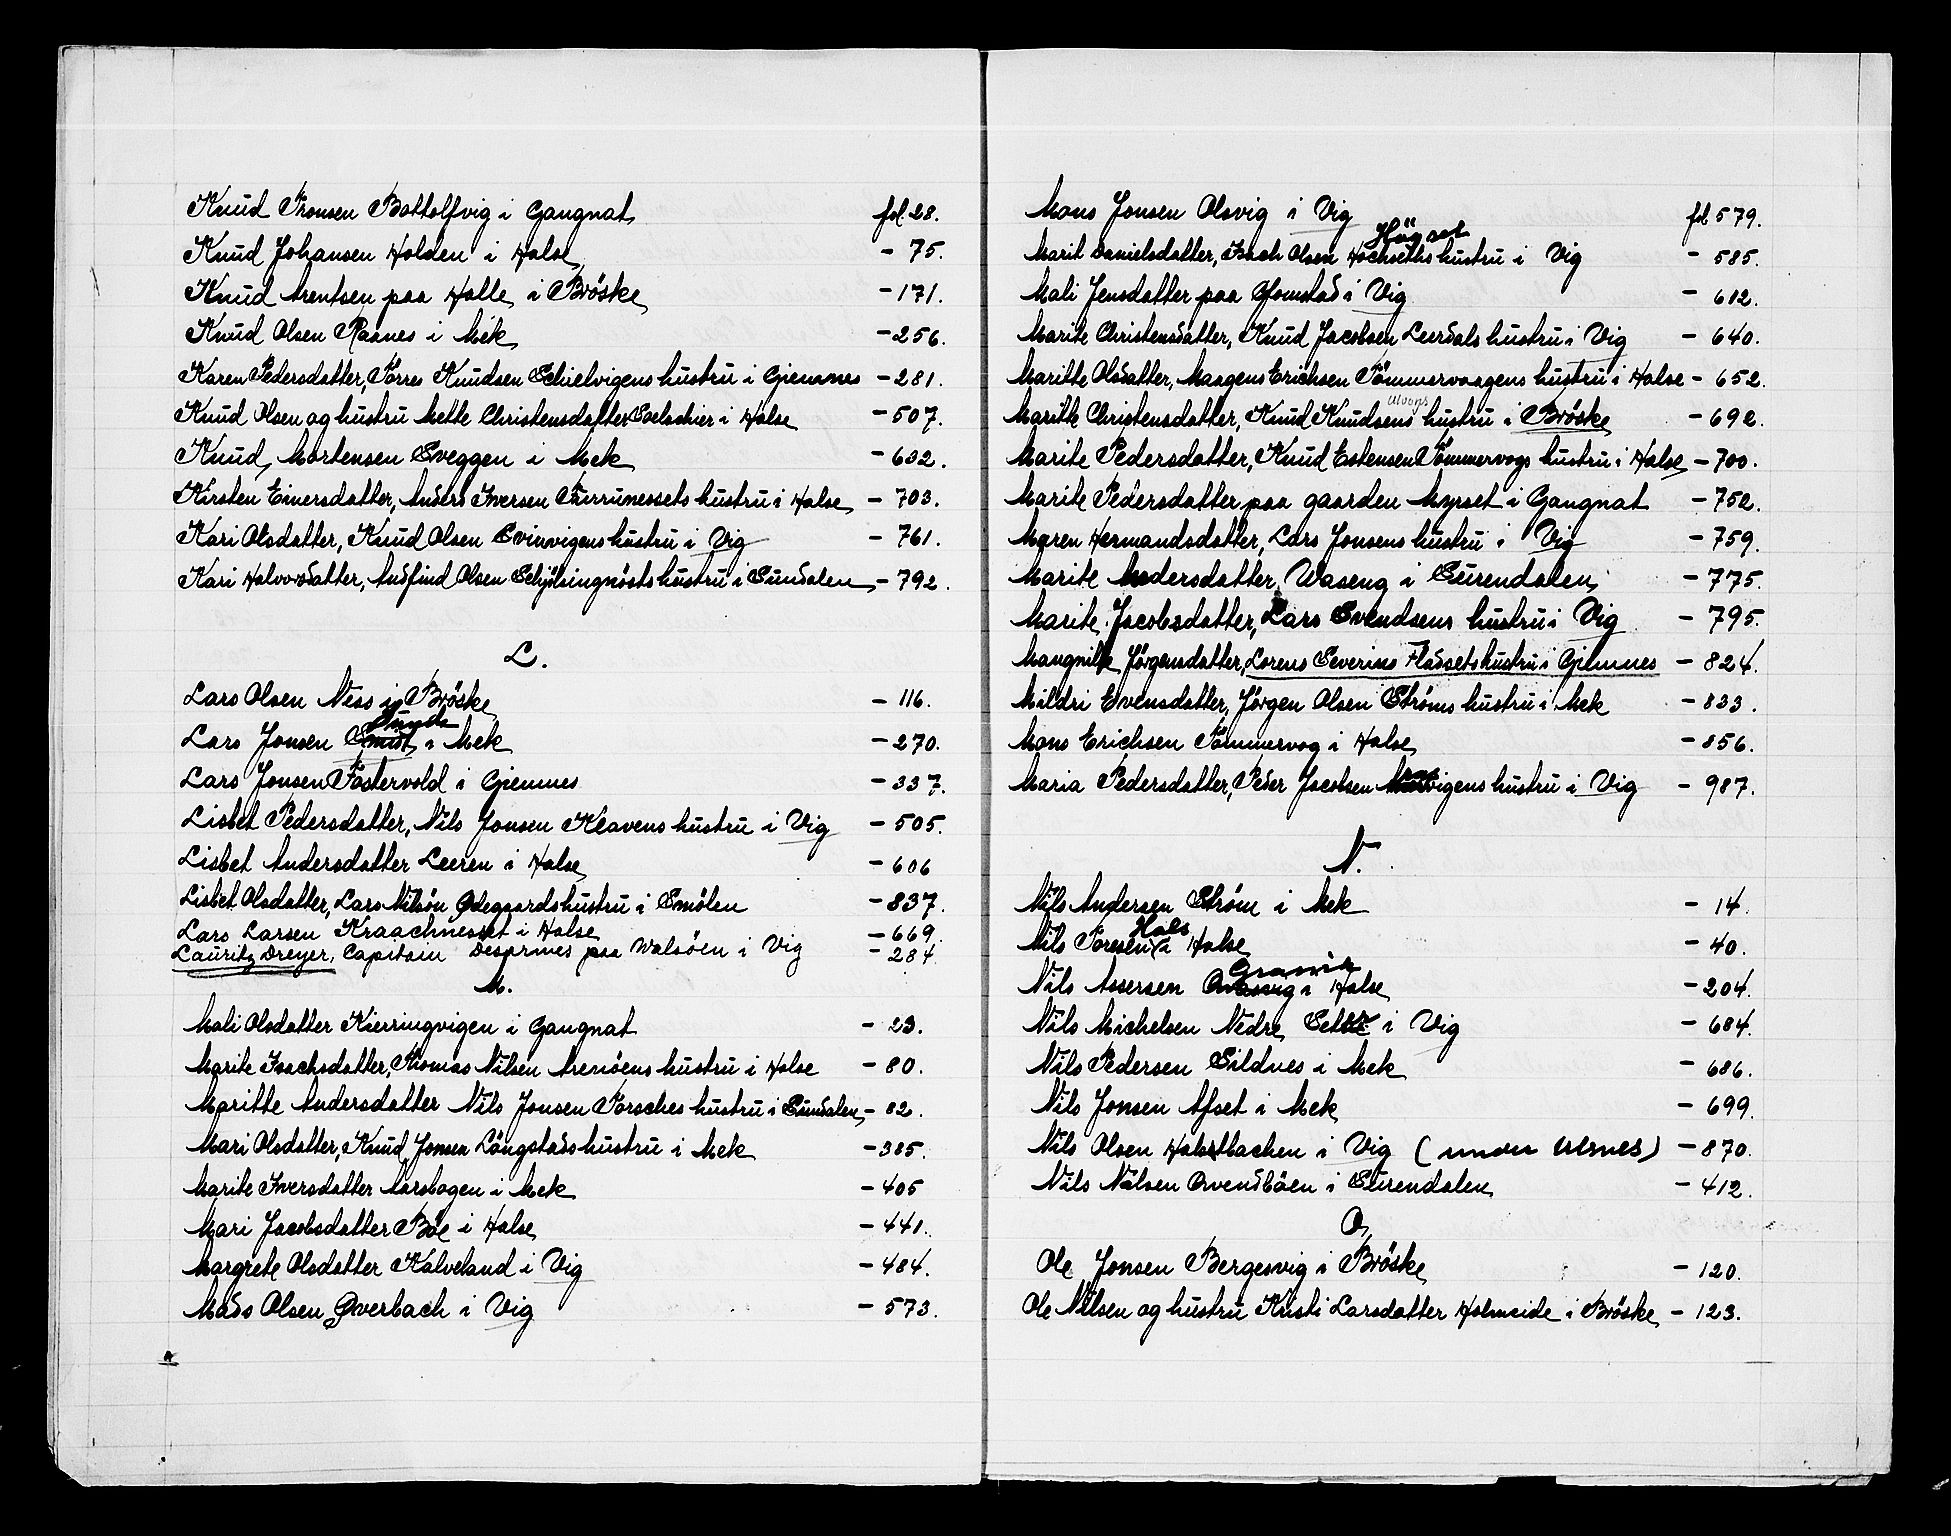 Knud Tronsen Bottolfvig i Gangnat fol. 28.
Knud Johansen Holden i Halse - 75.
Knud Arentsen paa Halle i Bröske - 171.
Knud Olsen Raanes i Mek - 256.
Karen Pedersdatter, Torres Knudsen Schielvigens hustru i Gjemnes - 281.
Knud Olsen og hustru Mette Christensdatter Soelschier i Halse - 507.
Knud Mortensen Sveggen i Mek - 632.
Kirsten Einersdatter, Anders Iversen Furrunessets hustru i Halse - 703.
Kari Olsdatter, Knud Olsen Svinvigens hustru i Vig - 761.
Kari Halvorsdatter, Audfind Olsen Schjölsingnösts hustru i Sundalen - 792.
L.
Lars Olsen Ness i Bröske - 116.
Sunde
Lars Jonsen Smidt i Mek - 270.
Lars Jonsen Fostervold i Gjemnes - 337.
Lisbet Pedersdatter, Nils Jonsen Klavens hustru i Vig - 505.
Lisbet Andersdatter Leeren i Halse - 606
Lisbet Olsdatter, Lars Nilsön Ødegaards hustru i Smölen - 837.
Lars Larsen Kraachnesset i Halse - 669.
Lauritz Dreyer, Capitain Desprines paa Walsöen i Vig - 284.
M.
Mali Olsdatter Kierringvigen i Gangnat - 23.
Marite Isachsdatter, Thomas Nilsen Arenöens hustru i Halse - 80.
Maritte Andersdatter Nils Jonsen Torsches hustru i Sundalen - 82.
Mari Olsdatter, Knud Jonsen Längstads hustru i Mek - 385.
Marite Iversdatter Aarsbogen i Mek - 405
Mari Jacobsdatter Böe i Halse - 441.
Margrete Olsdatter Kalveland i Vig - 484.
Mads Olsen Øverbach i Vig - 573.
Mons Jonsen Olsvig i Vig fol 579.
Högset
Marit Danielsdatter, Isach Olsen Hochseths hustru i Vig - 585.
Mali Jensdatter paa Gomstad i Vig - 612.
Marite Christensdatter, Knud Jacobsen Leerdals hustru i Vig - 640.
Maritte Olsdatter, Maagens Erichsen Tömmervaagens hustru i Halse - 652.
Maritte Christensdatter, Knud Knudsens hustru i Bröske - 692.
Marite Pedersdatter, Knud Estensen Tömmervogs hustru i Halse - 700.
Marite Pedersdatter paa gaarden Myrset i Gangnat - 752.
Maren Hermandsdatter, Lars Jonsens hustru i Vig - 759.
Marite Andersdatter, Waseng i Surendalen - 775.
Marite Jacobsdatter, Lars Svendsens hustru i Vig - 795.
Mangnilk Jörgensdatter, Lorens Severins Fladsets hustru i Gjemnes - 824.
Mildri Evensdatter, Jörgen Olsen Ströms hustru i Mek - 833.
Mons Erichsen Tömmervog i Halse - 856.
Maria Pedersdatter, Peder Jacobsen hustru i Vig - 987.
N.
Nils Andersen Ström i Mek - 14.
Hals
Nils Toresen i Halse - 40.
Granvik
Nils Assersen i Halse - 204.
Nils Michelsen Nedre Setter i Vig - 684.
Nils Pedersen Sildnes i Mek - 686.
Nils Jonsen Afset i Mek - 699.
Nils Olsen Holostbachen i Vig (under Ulsnes) - 870.
Nils Nilsen Qvendböen i Surendalen - 412.
O,
Ole Jonsen Bergesvig i Bröske - 120.
Ole Nilsen og hustru Kristi Larsdatter Holmeide i Bröske - 123.